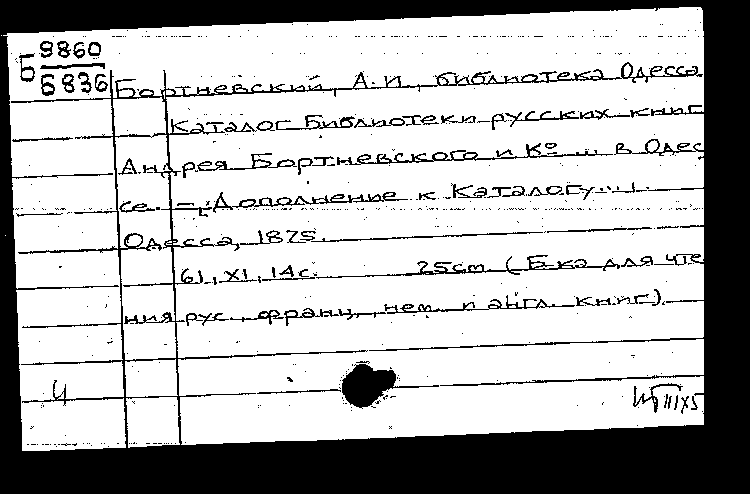 Б 9860
6836
Бортневский, А.И., библиотека Одесса
Каталог Библиотеки русских книг
Андрея Бортневского и Ко ... в Одес
се. –[Дополнение к Каталогу...].
Одесса, 1875.
61, XI, 14с. 25cm (Б-ка для чте
ния рус., франц., нем. и англ. книг)
Ч